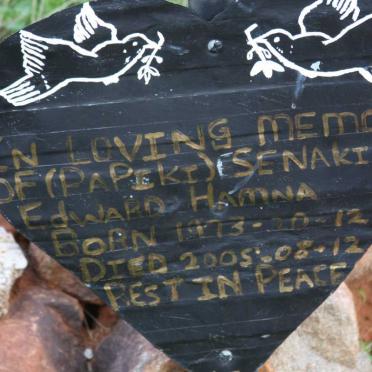 IN LOVING MEMO
OF (PAPIKI) SENAKI
EDWARD HAMNA
BORN 1973-20-12
DIED 2005-08-12
REST IN PEACE